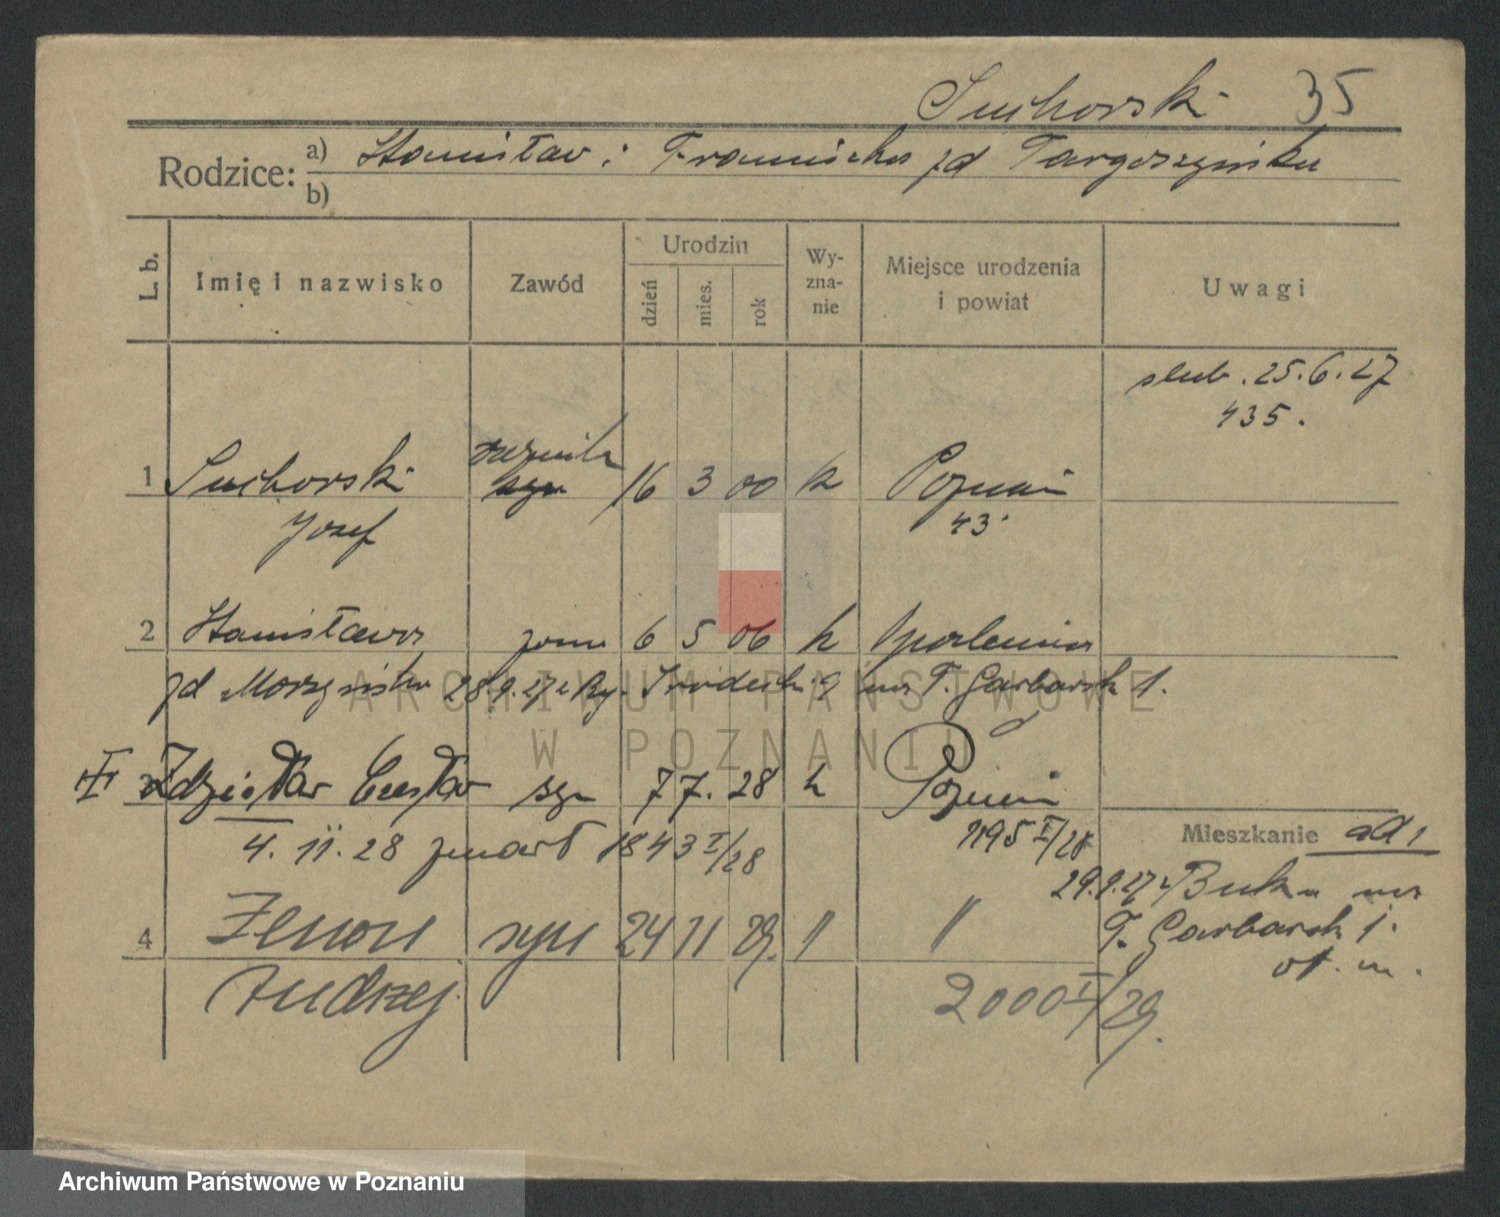 Suchorski 35
Rodzice: a) Stanisław i Franciszka zd Targoszyńska
b)
L. b. Imię i nazwisko Zawód Urodzin dzień mies. rok Wy-zna-nie Miejsce urodzenia i powiat Uwagi
ślub. 25.6.27
435.
rzeźnik
1 Suchorski 16 3 00 k Poznań
Józef 43
2 Stanisława żona 6 5 06 k
zd 28.9.27 T. Garbarsk 1.
Zdzisław Czesław syn 7 7. 28 k Poznań
4. 11. 28 zmarł 1843 I/28 1195 I/28
Mieszkanie ad 1
29.9.27 z Buku na
4 Zenon syn 24 11 29. " " T. Garbarsk 1.
Andrzej 2000 I/29.
ARCHIWUM PAŃSTWOWE
W POZNANIU
Archiwum Państwowe w Poznaniu